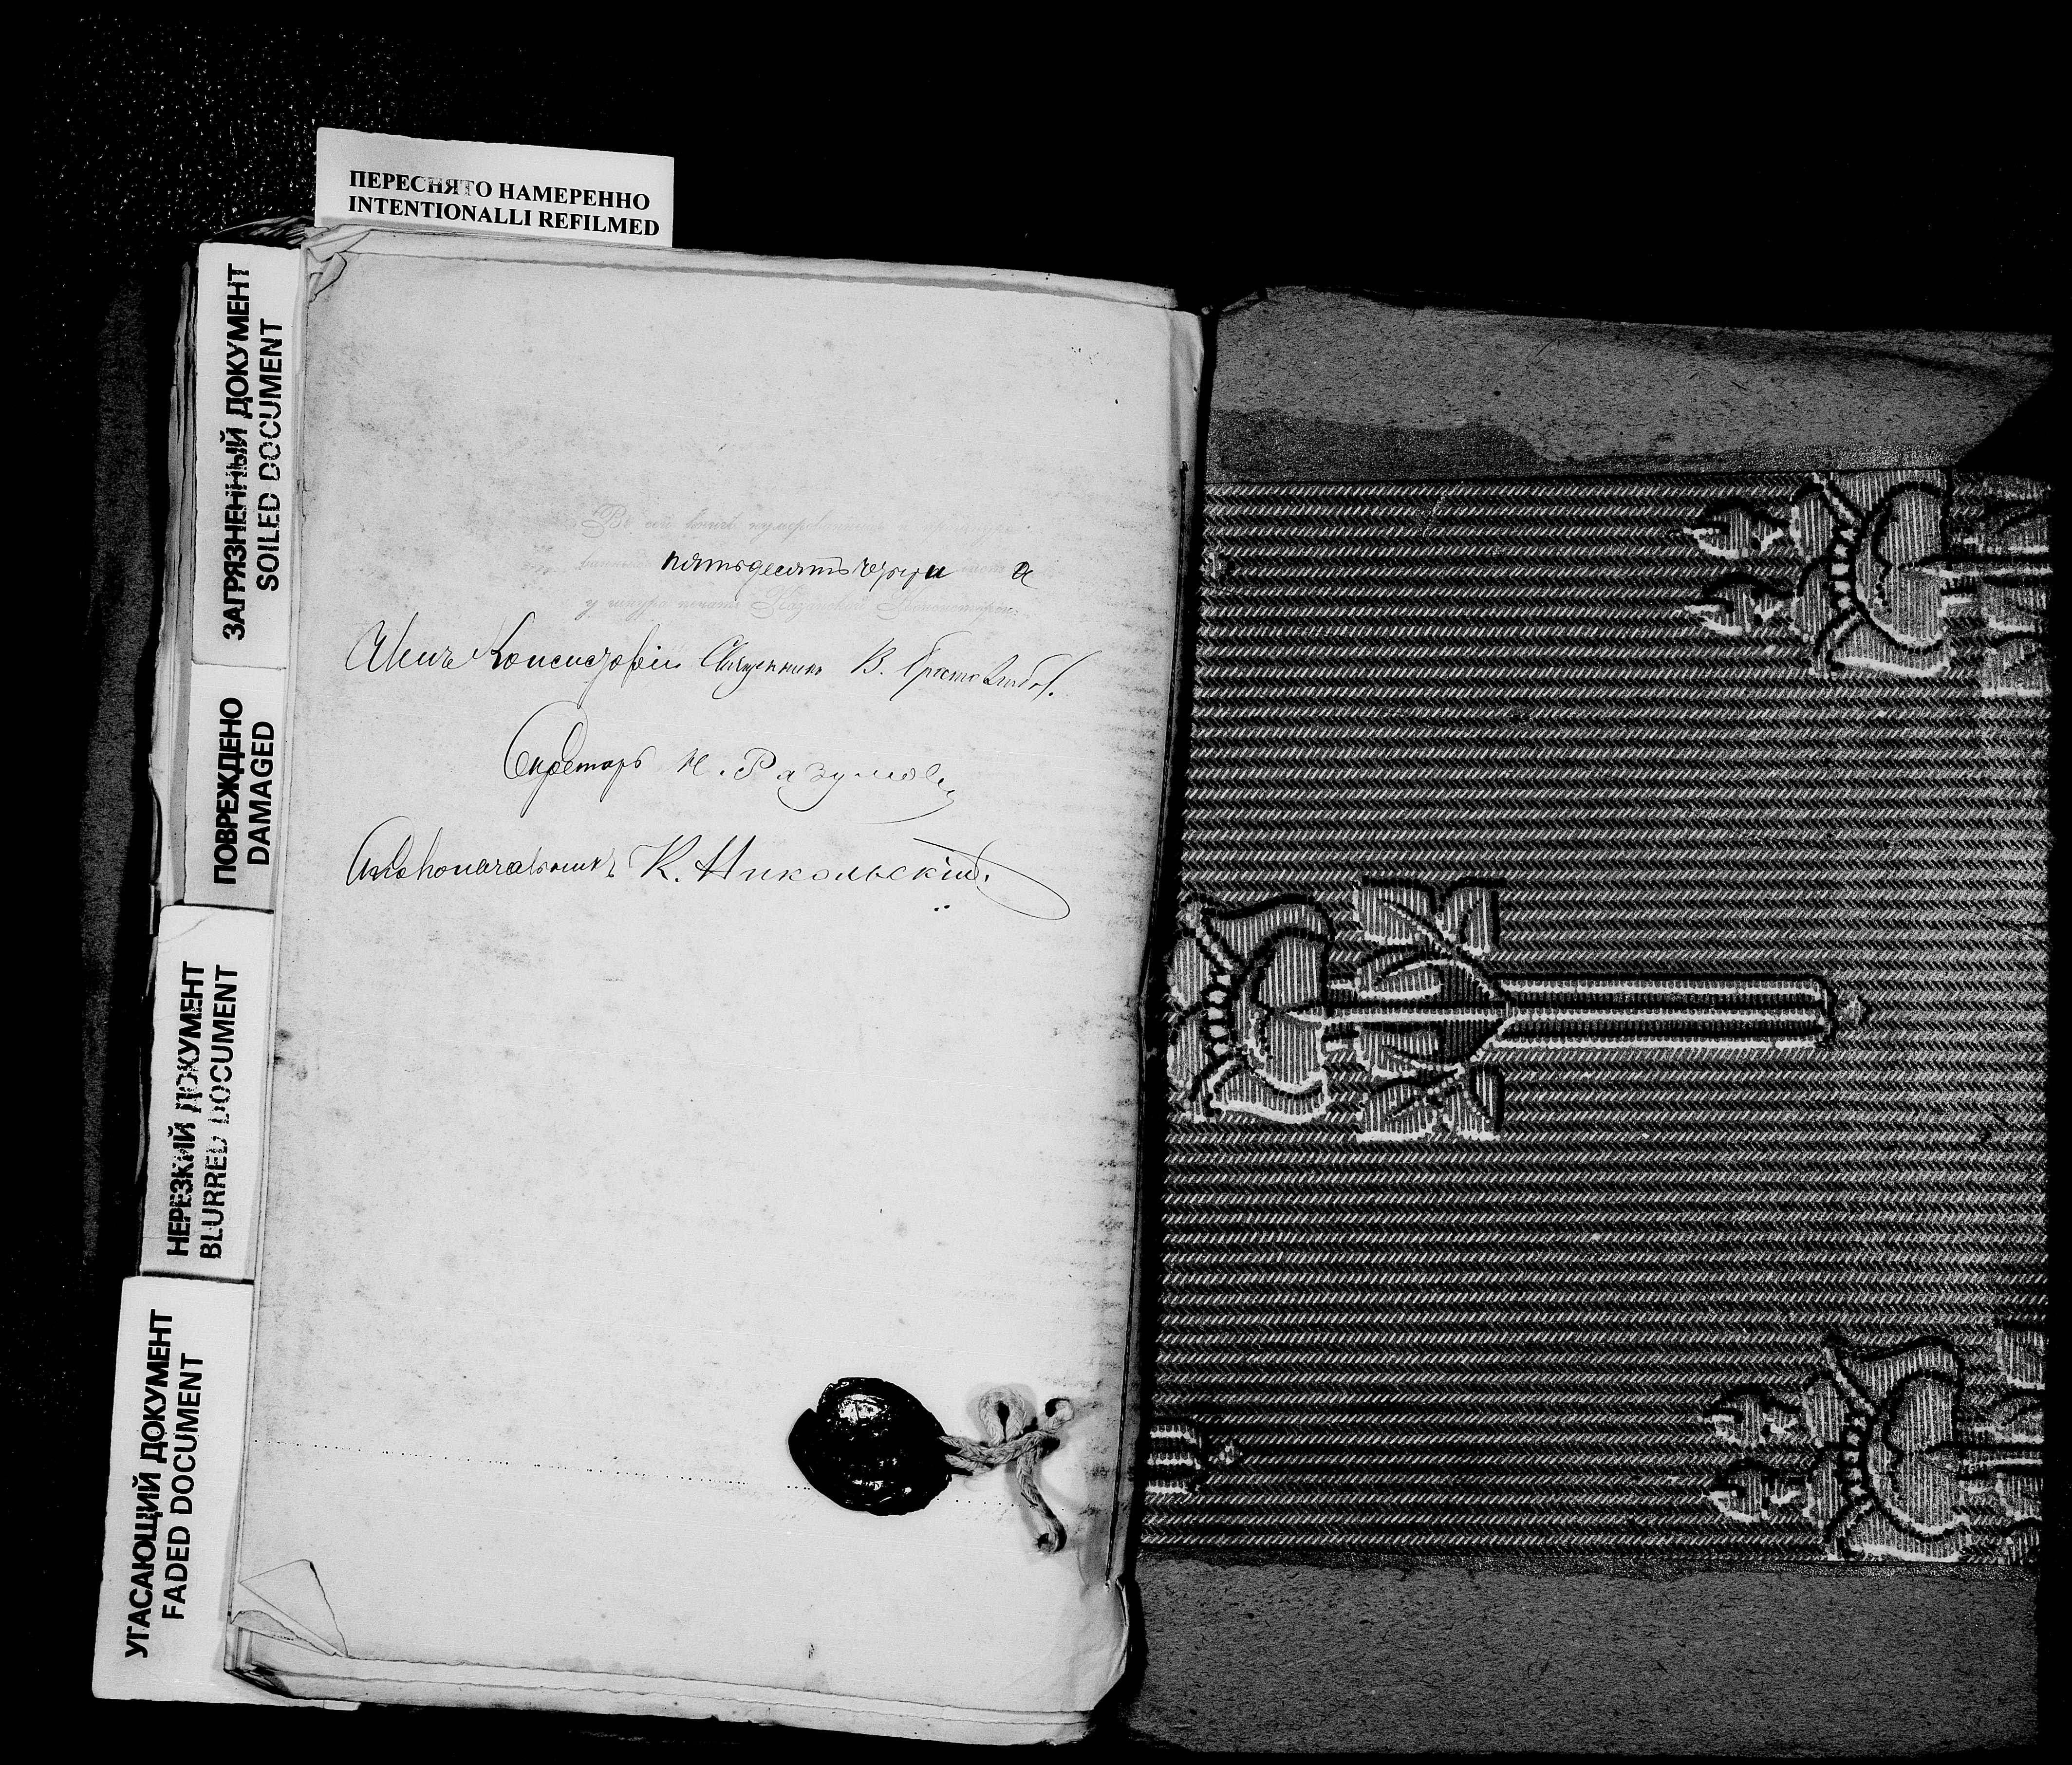 ПЕРЕСНЯТО НАМЕРЕННО
INTENTIONALLI REFILMED
ЗАГРЯЗНЕННЫЙ ДОКУМЕНТ
SOILED DOCUMENT
ПОВРЕЖДЕНО
DAMAGED
НЕРЕЗКИЙ ДОКУМЕНТ
BLURRED DOCUMENT
УГАСАЮЩИЙ ДОКУМЕНТ
FADED DOCUMENT
Въ сей книгѣ нумерованныхъ и
пятьдесятъ три а
у шнура печати Казанской
Членъ Консисторіи Священникъ В.
Секретарь Н. Разумовъ
Столоначальникъ К. Никольскій.